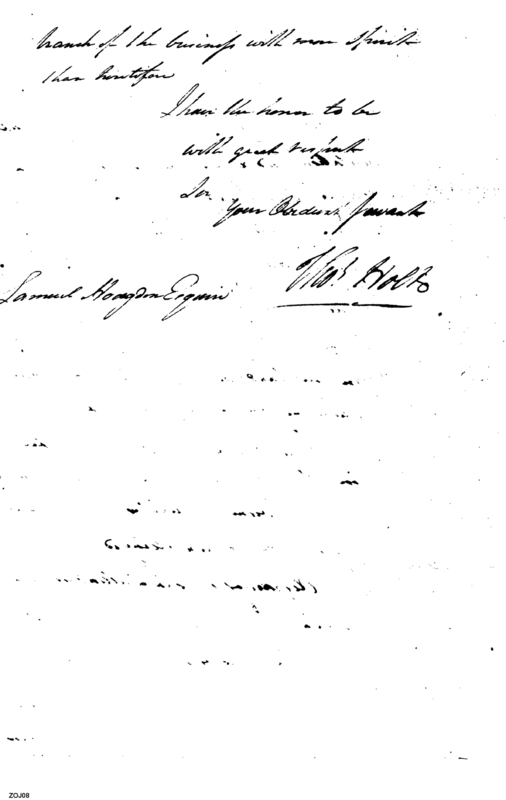 branch of the business with more spirit
than heretofore
I have the honor to be
with great respect
Sir
Your Obedient Servant
Thos. Holt
Samuel Hodgdon Esquire
ZOJ08